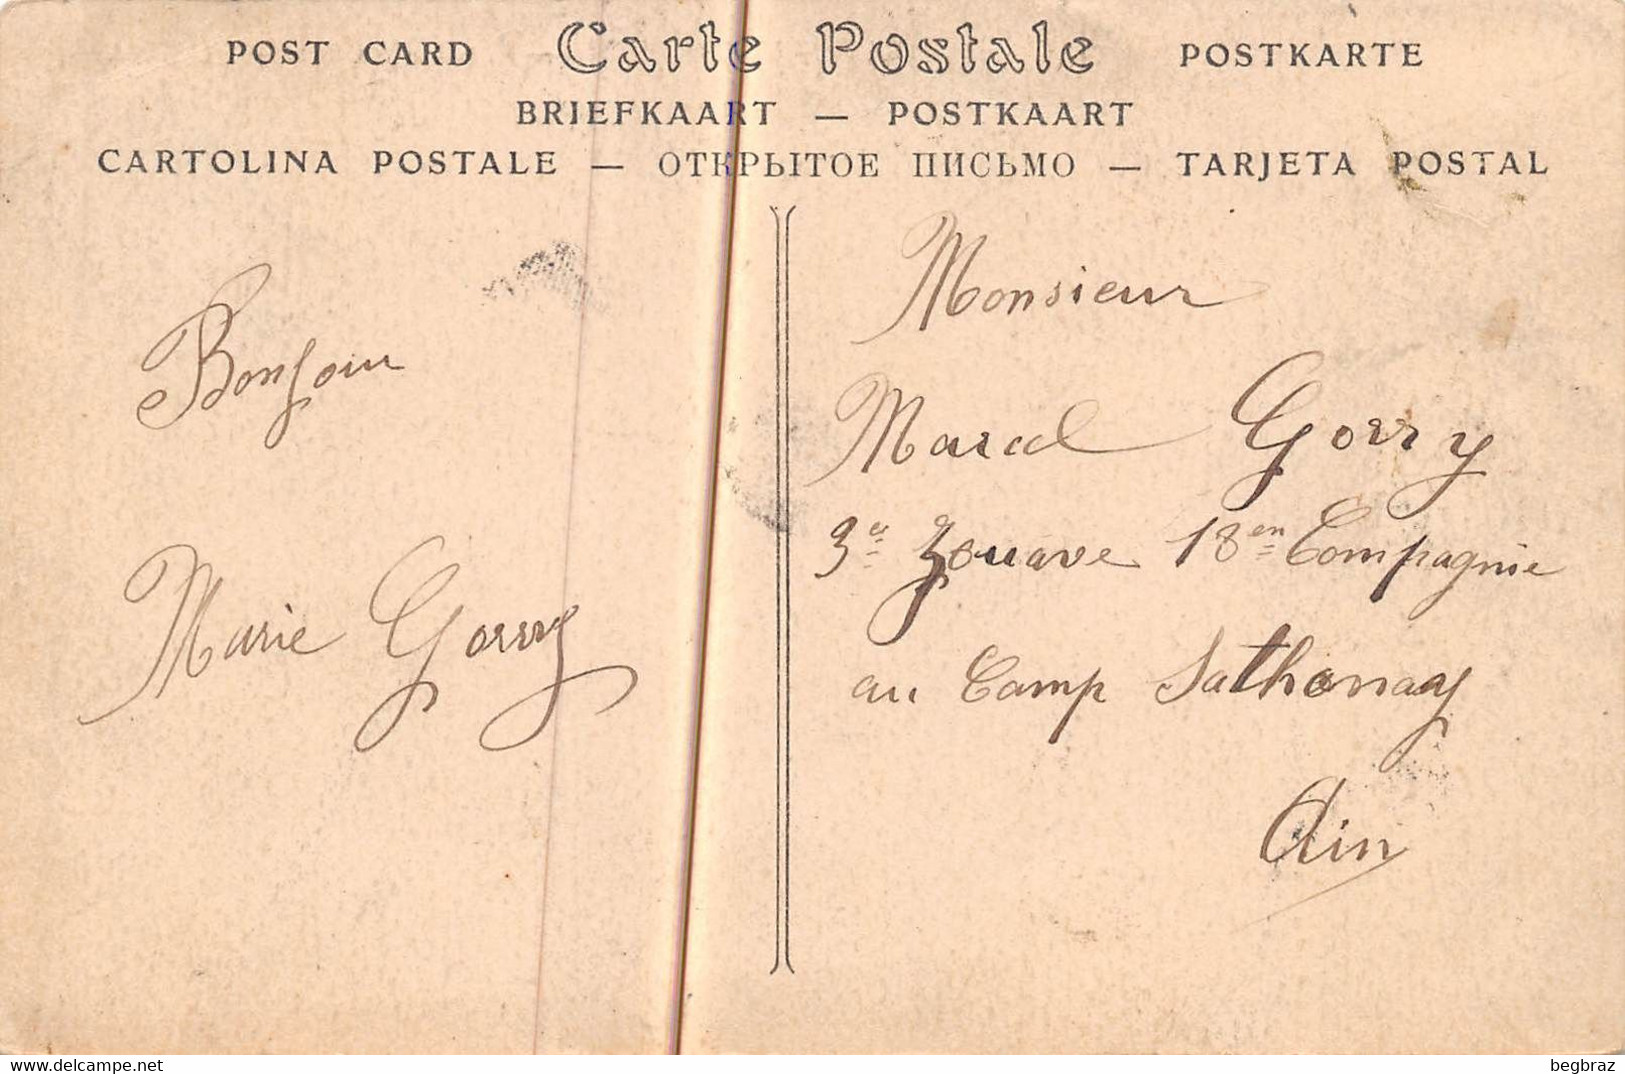 POST CARD Carte Postale POSTKARTE
BRIEFKAART — POSTKAART
CARTOLINA POSTALE — ОТКРЫТОЕ ПИСЬМО — TARJETA POSTAL
Bonjour
Marie Gorry
Monsieur
Marcel Gorry
3e Zouave 18en Compagnie
au Camp Sathonay
Ain
begbraz